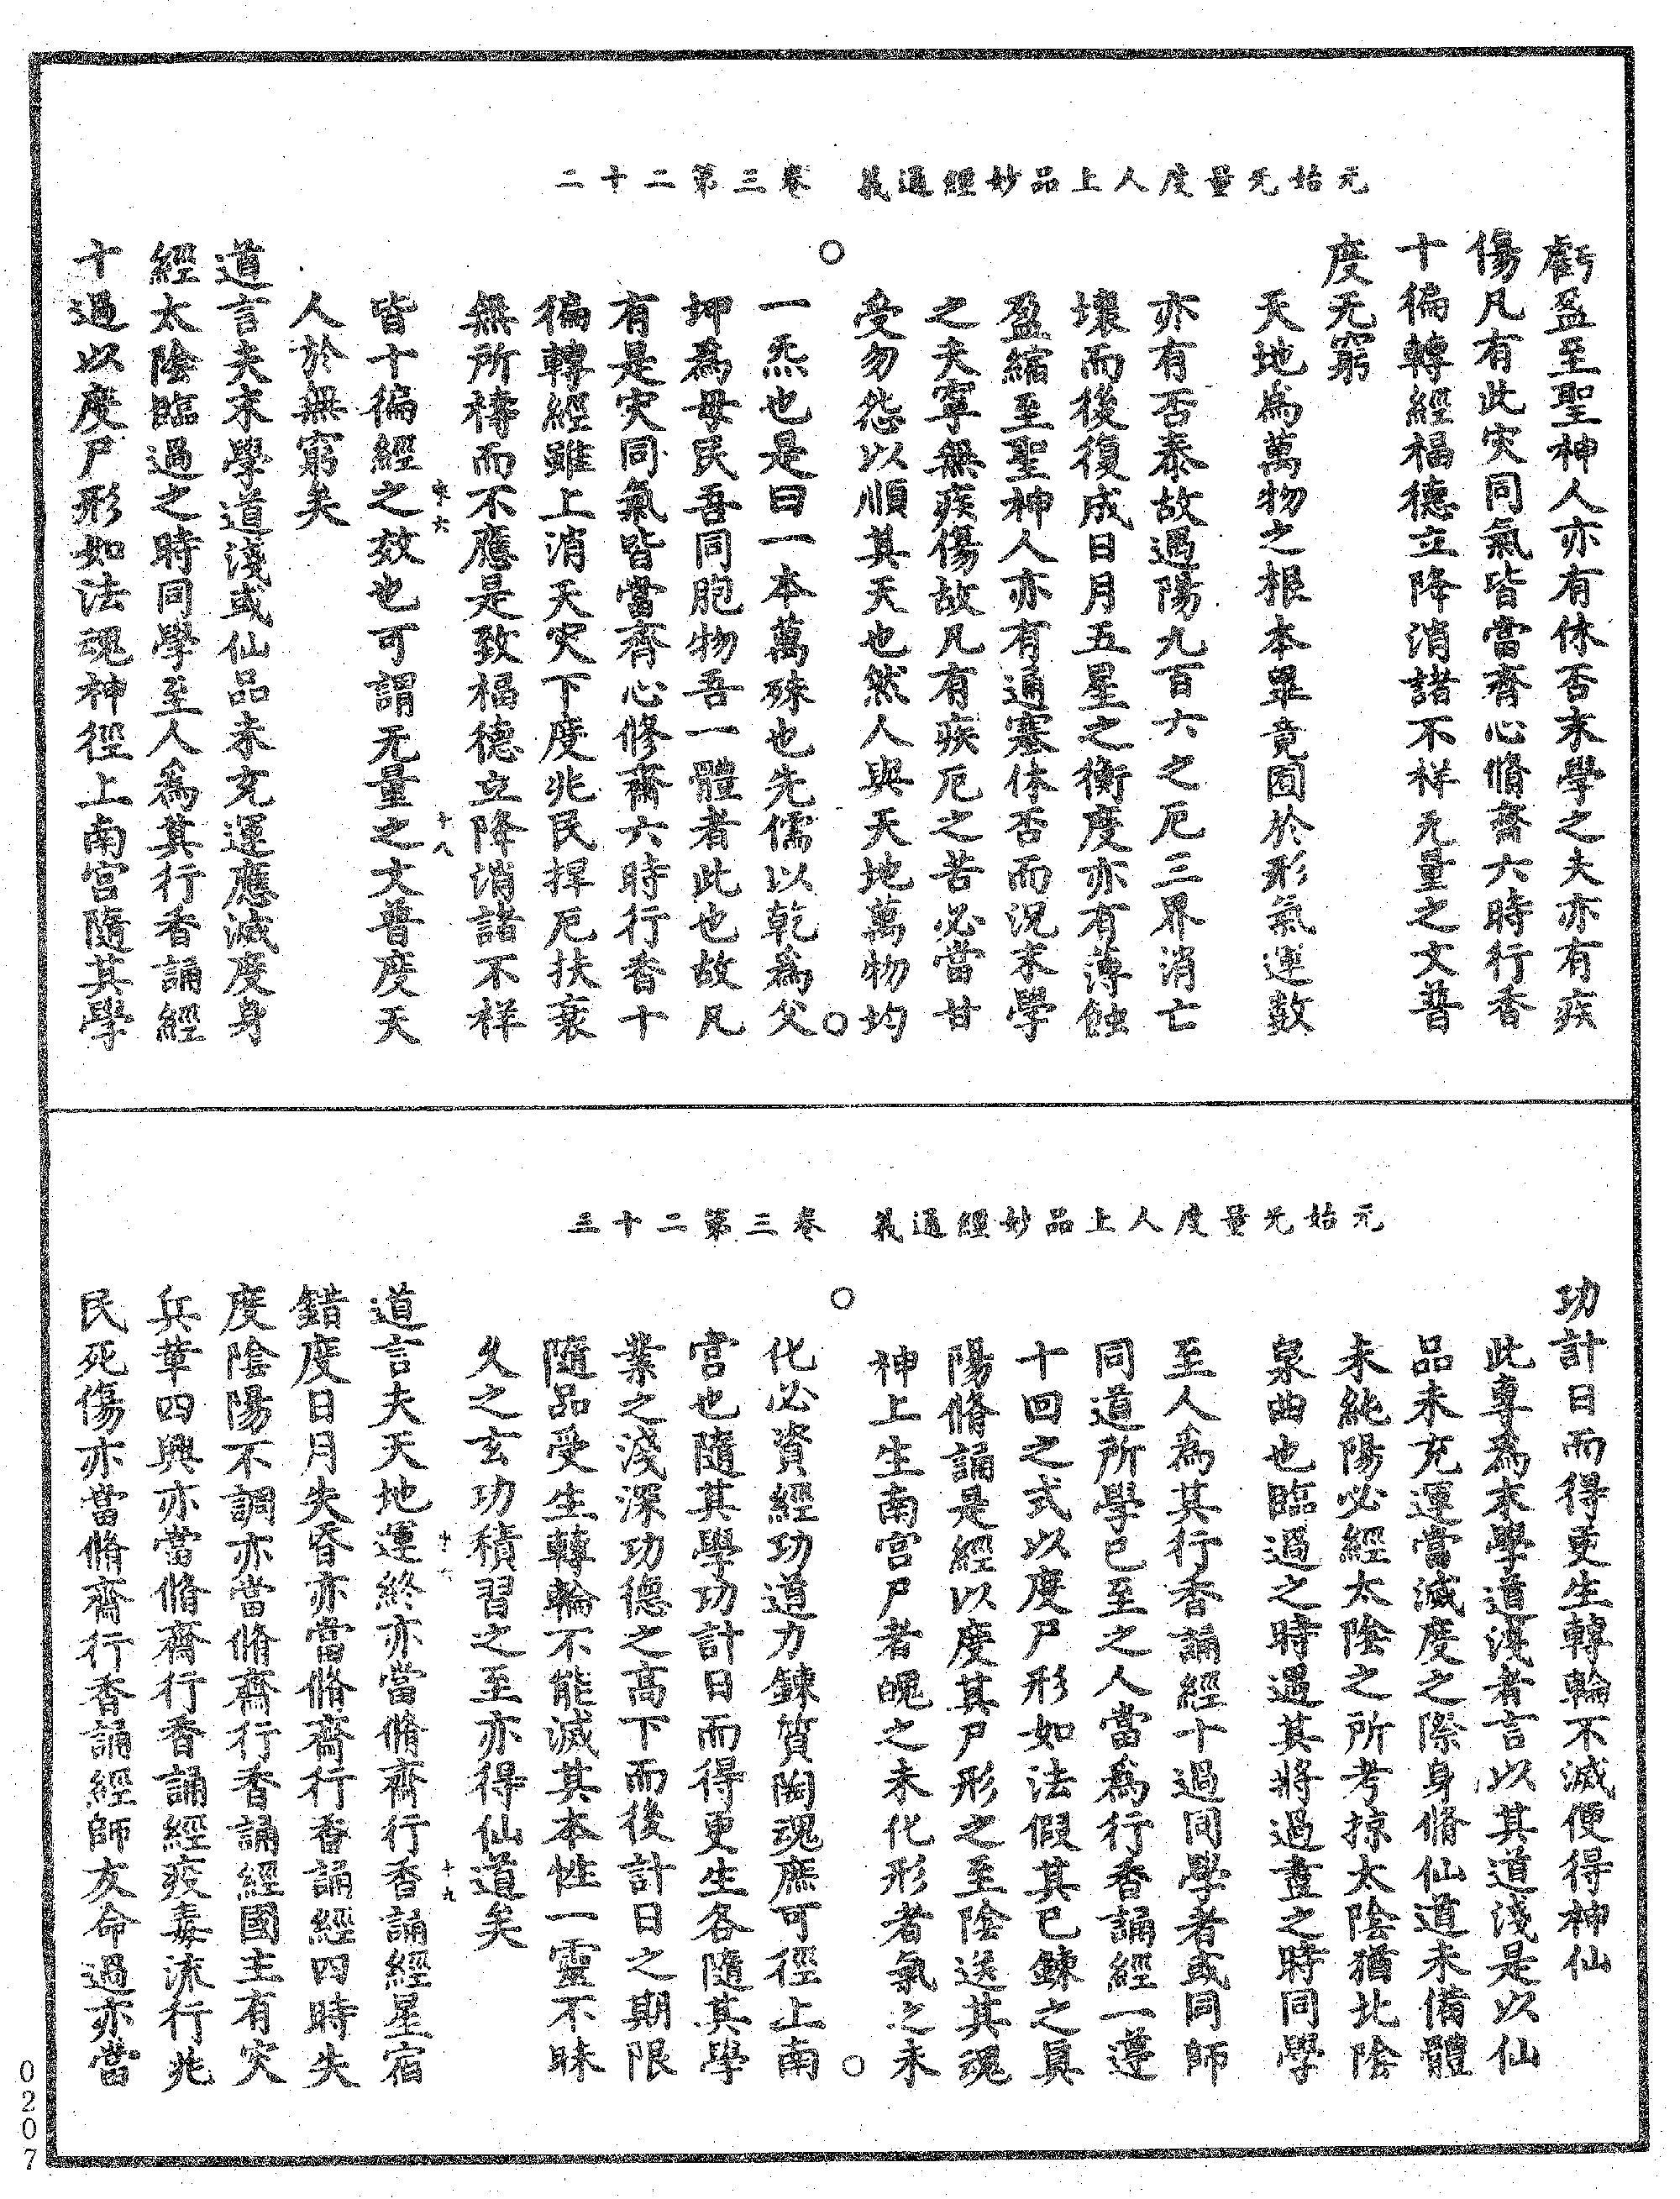 元始无量度人上品妙經通義　卷三第二十二
虧盈至聖神人亦有休否末學之夫亦有疾
傷凡有此灾同氣皆當齊心脩齋六時行香
十徧轉經福德立降消諸不祥无量之文普
度无窮
天地為萬物之根本畢竟囿於形氣運數
亦有否泰故遇陽九百六之厄三界消亡
壞而後復成日月五星之衡度亦有薄蝕
盈縮至聖神人亦有通塞休否而況末學
之夫寧無疾傷故凡有疾厄之苦必當甘
受勿怨以順其天也然人與天地萬物均
一炁也是曰一本萬殊也先儒以乾為父
坤為母民吾同胞物吾一體者此也故凡
有是灾同氣皆當齊心修齋六時行香十
徧轉經雖上消天灾下度兆民捍厄扶衰
無所禱而不應是致福德立降消諸不祥
皆十徧經之效也可謂无量之文普度天
人於無窮矣
道言夫末學道淺或仙品未充運應滅度身
經太陰臨過之時同學至人為其行香誦經
十過以度尸形如法魂神徑上南宮隨其學
元始无量度人上品妙經通義　卷三第二十三
功計日而得更生轉輪不滅便得神仙
此專為末學道淺者言以其道淺是以仙
品未充運當滅度之際身脩仙道未備體
未純陽必經太陰之所考掠太陰猶北陰
泉曲也臨過之時過其將過晝之時同學
至人為其行香誦經十過同學者或同師
同道所學已至之人當為行香誦經一遵
十回之式以度尸形如法假其已鍊之真
陽脩誦是經以度其尸形之至陰送其魂
神上生南宮尸者魄之未化形者氣之未
化必資經功道力鍊質陶魂庶可徑上南
宮也隨其學功計日而得更生各隨其學
業之淺深功德之高下而後計日之期限
隨品受生轉輪不能滅其本性一靈不昧
久之玄功積習之至亦得仙道矣
道言夫天地運終亦當脩齋行香誦經星宿
錯度日月失昏亦當脩齋行香誦經四時失
度陰陽不調亦當脩齋行香誦經國主有灾
兵革四興亦當脩齋行香誦經疫毒流行兆
民死傷亦當脩齋行香誦經師友命過亦當
0207